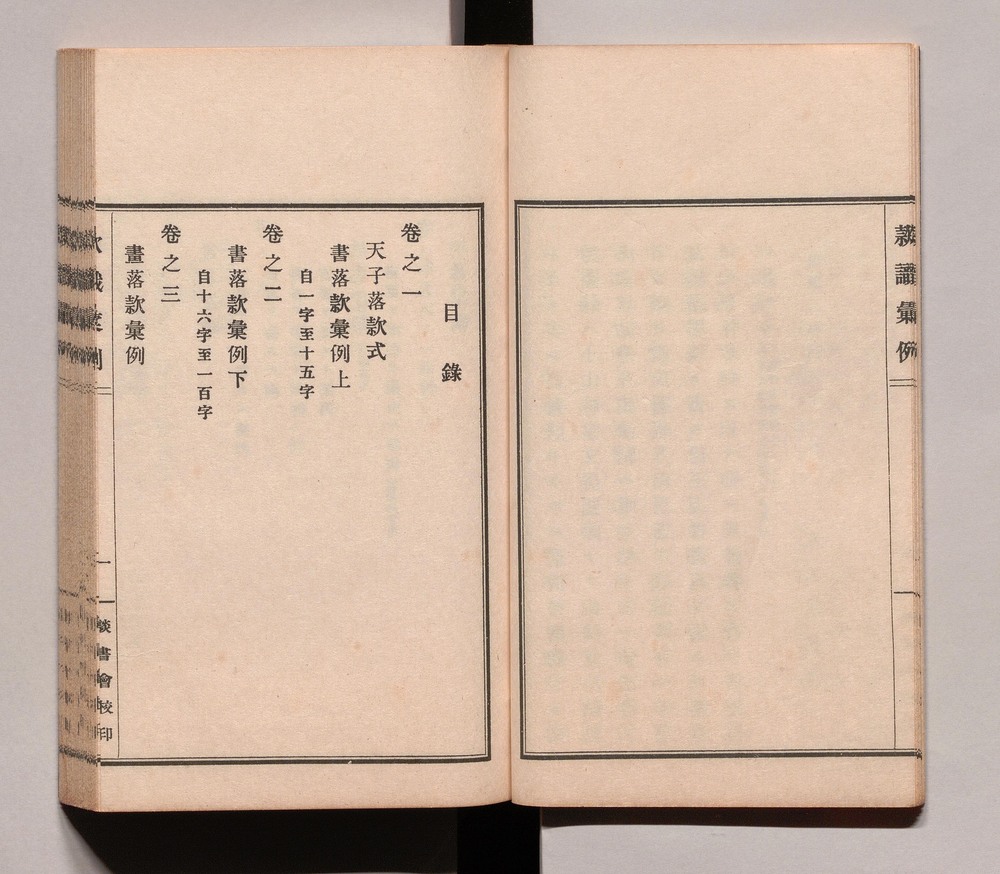 彙例
目錄
卷之一
天子落款式
書落款彙例上
自一字至十五字
卷之二
書落款彙例下
自十六字至一百字
卷之三
畫落款彙例
一
書會校印